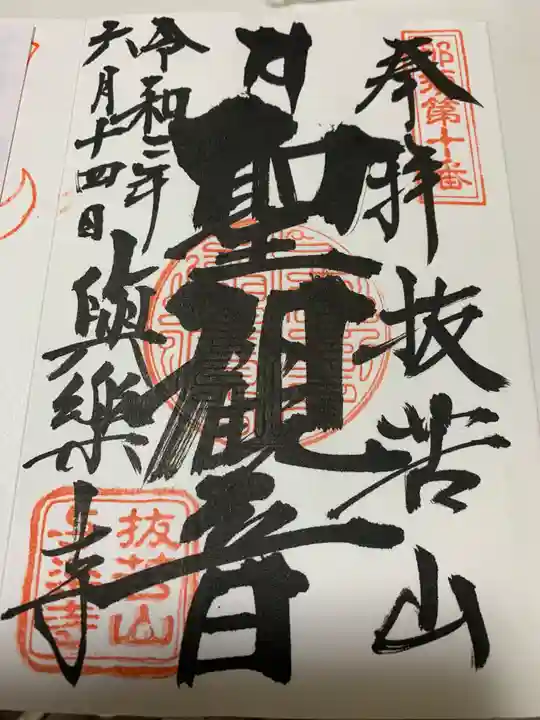 奉拝
抜苦山
聖観音
令和二年
六月十四日
與樂寺
那須第十番
抜苦山
與樂寺